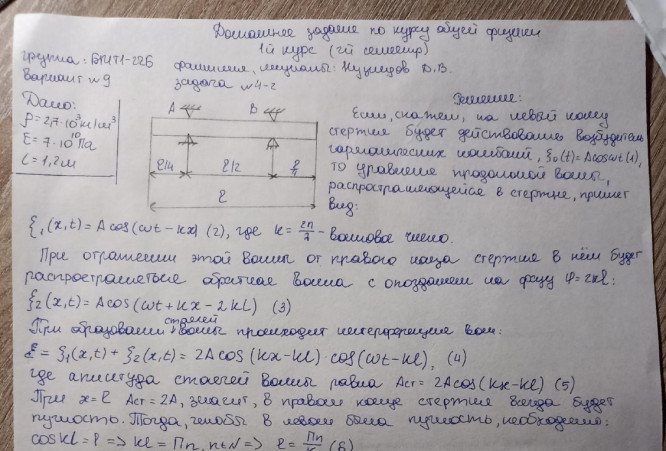 Домашнее задание по курсу общей физики
1й курс (2й семестр)
группа: БМТ1-22Б
фамилия, инициалы: Кузнецов Д.В.
Вариант №9
задача №4-2
Дано:
ρ = 2,7·10³ кг/м³
E = 7·10¹⁰ Па
L = 1,2 м
A B
ℓ/4 ℓ/2 ℓ/4
ℓ
Решение:
Если, скажем, на левый конец
стержня будет действовать возбудитель
гармонических колебаний, ξ₀(t) = A cos ωt (1),
то уравнение продольной волны,
распространяющейся в стержне, примет
вид:
ξ₁(x,t) = A cos(ωt − kx) (2), где k = 2π/λ - волновое число.
При отражении этой волны от правого конца стержня в нём будет
распространяться обратная волна с опозданием на фазу φ = 2kl:
ξ₂(x,t) = A cos(ωt + kx − 2kl) (3)
При образовании стоячей волны происходит интерференция волн:
ξ = ξ₁(x,t) + ξ₂(x,t) = 2A cos(kx − kl) · cos(ωt − kl), (4)
где амплитуда стоячей волны равна Aст = 2A cos(kx − kl) (5)
При x = ℓ Aст = 2A, значит, в правом конце стержня всегда будет
пучность. Тогда, чтобы в левом была пучность, необходимо:
cos kl = 1 => kl = πn, n∈N => ℓ = πn/k (6)